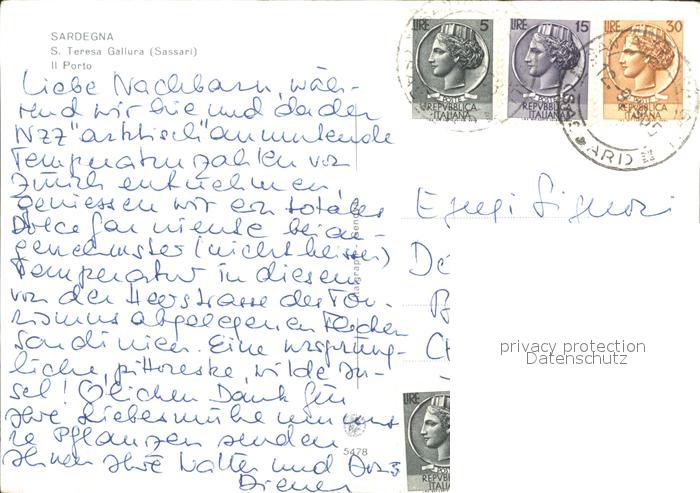 SARDEGNA
S. Teresa Gallura (Sassari)
Il Porto
Liebe Nachbarn, wäh-
rend wir hie und da der
NZZ "arktisch" anmutende
Temperaturzahlen von
Zürich entnehmen,
geniessen wir ein totales
Dolce far niente bei an-
genehmster (nicht heisser)
Temperatur in diesem
von der Heerstrasse des Tou-
rismus abgelegenen Flecken
Sardinien. Eine ursprüng-
liche, pittoreske, wilde In-
sel! ♡lichen Dank für
Ihre Liebesmühe um uns
re Pflanzen senden
Ihnen Ihre Walter und
Diener
LIRE 5
POSTE
REPVBBLICA
ITALIANA
LIRE 15
POSTE
REPVBBLICA
ITALIANA
LIRE 30
POSTE
REPVBBLICA
ITALIANA
Egregi Signori
De
C
privacy protection
Datenschutz
LIRE
5478